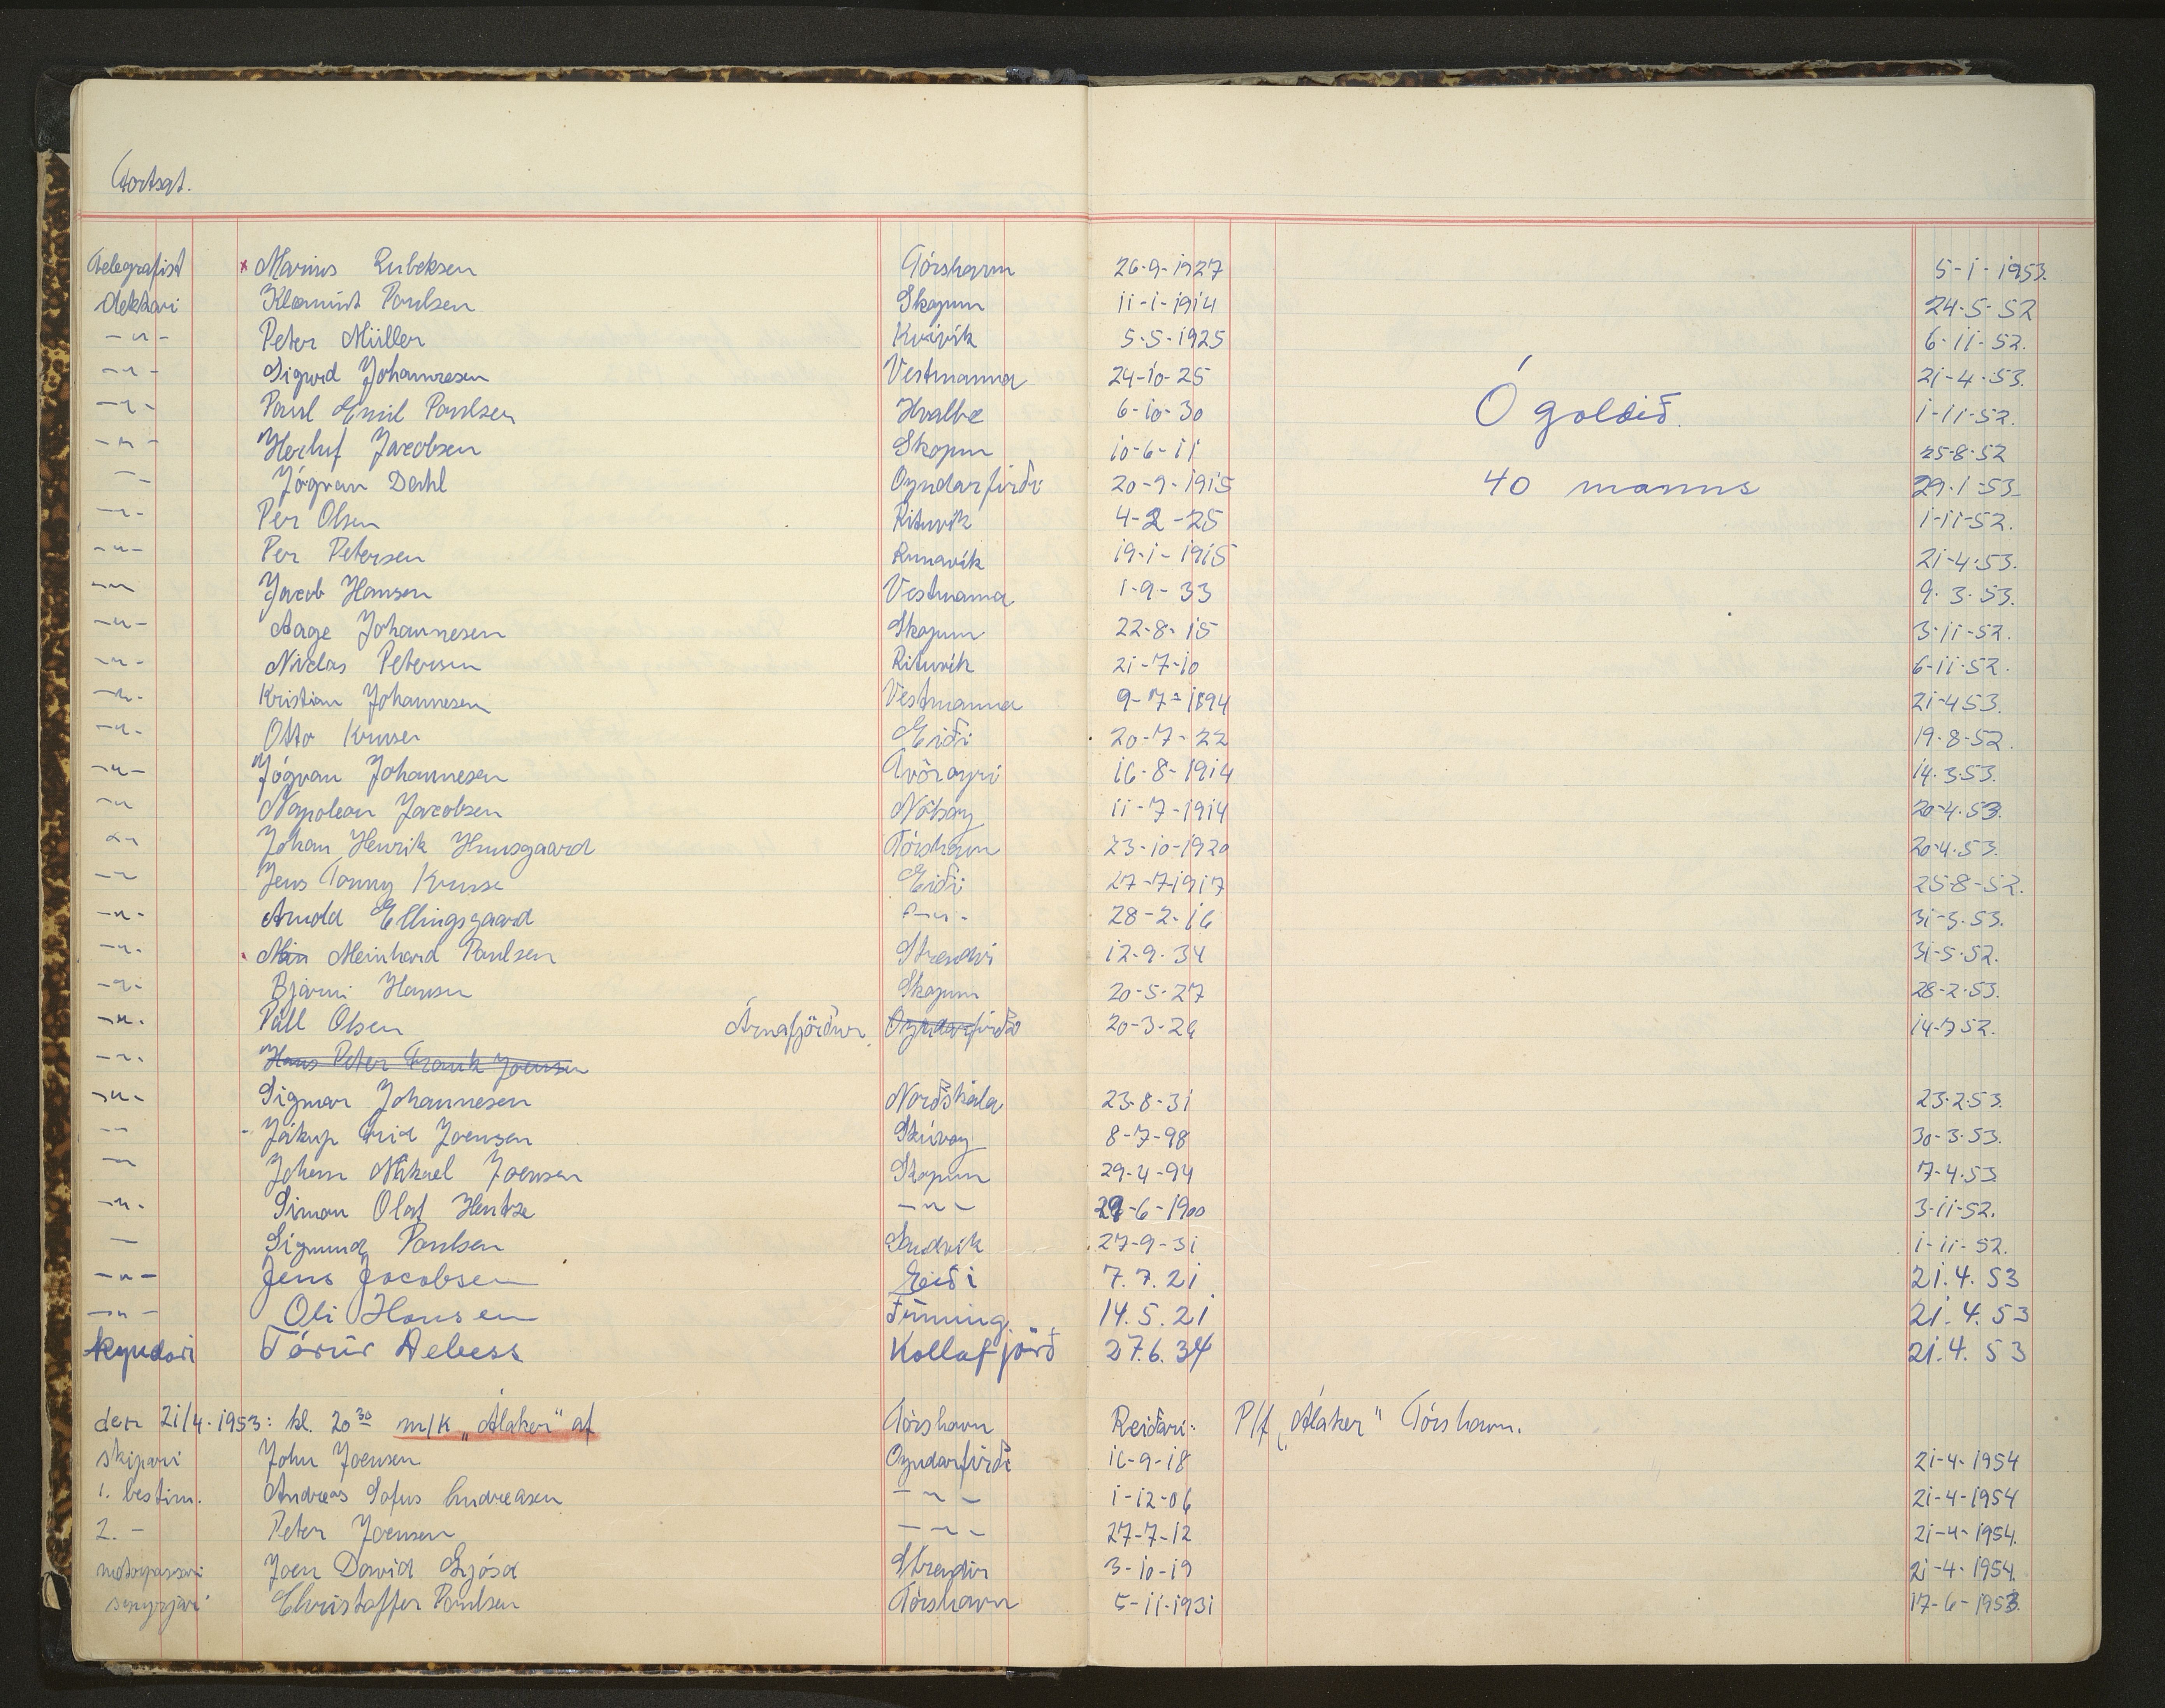 Fortsat.
Telegrafist x Marius Rubeksen Tórshavn 26-9-1927 5-1-1953.
dekkari Klæmint Poulsen Skopun 11-1-1914 24-5-52
-"- Peter Müller Kvívík 5-5-1925 6-11-52.
-"- Sigurd Johannesen Vestmanna 24-10-25 21-4-53.
-"- Poul Emil Poulsen Hvalbø 6-10-30 Ógoldið. 1-11-52.
-"- Herluf Jacobsen Skopun 10-6-11 25-8-52
-"- Jógvan Dahl Oyndarfirði 20-9-1915 40 manns 29-1-53
-"- Per Olsen Rituvík 4-2-25 1-11-52.
-"- Per Petersen Runavík 19-1-1915 21-4-53.
-"- Jacob Hansen Vestmanna 1-9-33 9-3-53.
-"- Aage Johannesen Skopun 22-8-15 3-11-52.
-"- Niclas Petersen Rituvík 21-7-10 6-11-52.
-"- Kristian Johannesen Vestmanna 9-7-1894 21-4 53.
-"- Otto Kruse Eiði 20-7-22 19-8-52.
-"- Jógvan Johannesen Tvöroyri 16-8-1914 14-3-53.
-"- Napoleon Jacobsen Nólsoy 11-7-1914 20-4-53.
-"- Johan Henrik Husgaard Tórshavn 23-10-1920 20-4-53.
-"- Jens Tonny Kruse Eiði 27-7-1917 25-8-52.
-"- Arnold Ellingsgaard -"- 28-2-16 31-3-53.
-"- Meinhard Poulsen Strendur 12-9-34 31-5-52.
-"- Bjarni Hansen Skopun 20-5-27 28-2-53.
-"- Páll Olsen Árnafjörður. Oyndarfirði 20-3-26 14-7 52.
-"- Hans Peter Frank Joensen
-"- Sigmar Johannesen Norðskála 23-8-31 23-2-53.
-"- Jákup Joensen Skúvoy 8-7-98 30-3-53.
-"- Johan Mikael Joensen Skopun 29-4-94 7-4-53
-"- Simon Olaf Hentze -"- 29-6-1900 3-11-52.
- Sigmund Poulsen 27-9-31 1-11-52.
-"- Jens Jacobsen Eiði 7.7.21 21.4.53
-"- Oli Hansen Funning 14.5.21 21.4.53
kyndari Tórur Debess Kollafjörð 27.6.34 21.4.53
den 21/4-1953: kl. 20 30 m/k „Álaker" af Tórshavn Reiðari: P/f „Álaker" Tórshavn.
skipari John Joensen Oyndarfirði 16-9-18 21-4-1954
1. bestim. Andreas Sofus Andreasen -"- 1-12-06 21-4-1954
2. - Peter Joensen -"- 27-7-12 21-4-1954.
motorpassari Joen David Ljósá Strendur 3-10-19 21-4-1954.
smyrjari Christoffer Poulsen Tórshavn 5-11-1931 17-6-1953.